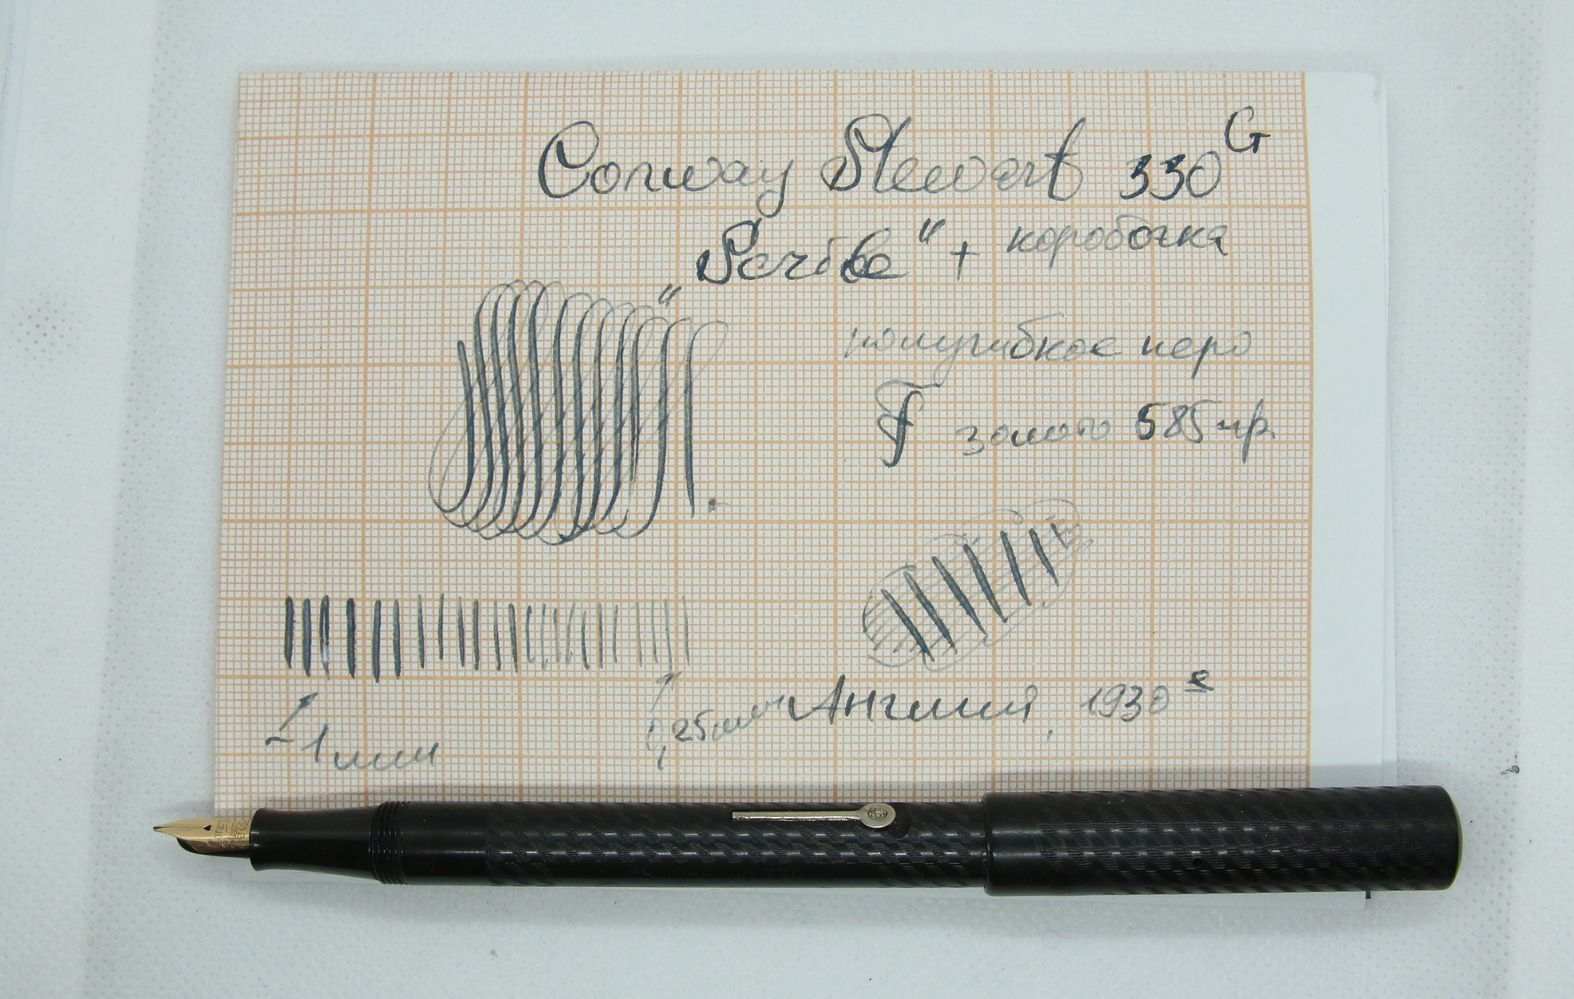 Conway Stewart 330G
"Scribe" + коробочка
полугибкое перо
F золото 585 пр.
~1мм
0,25мм
Англия, 1930е